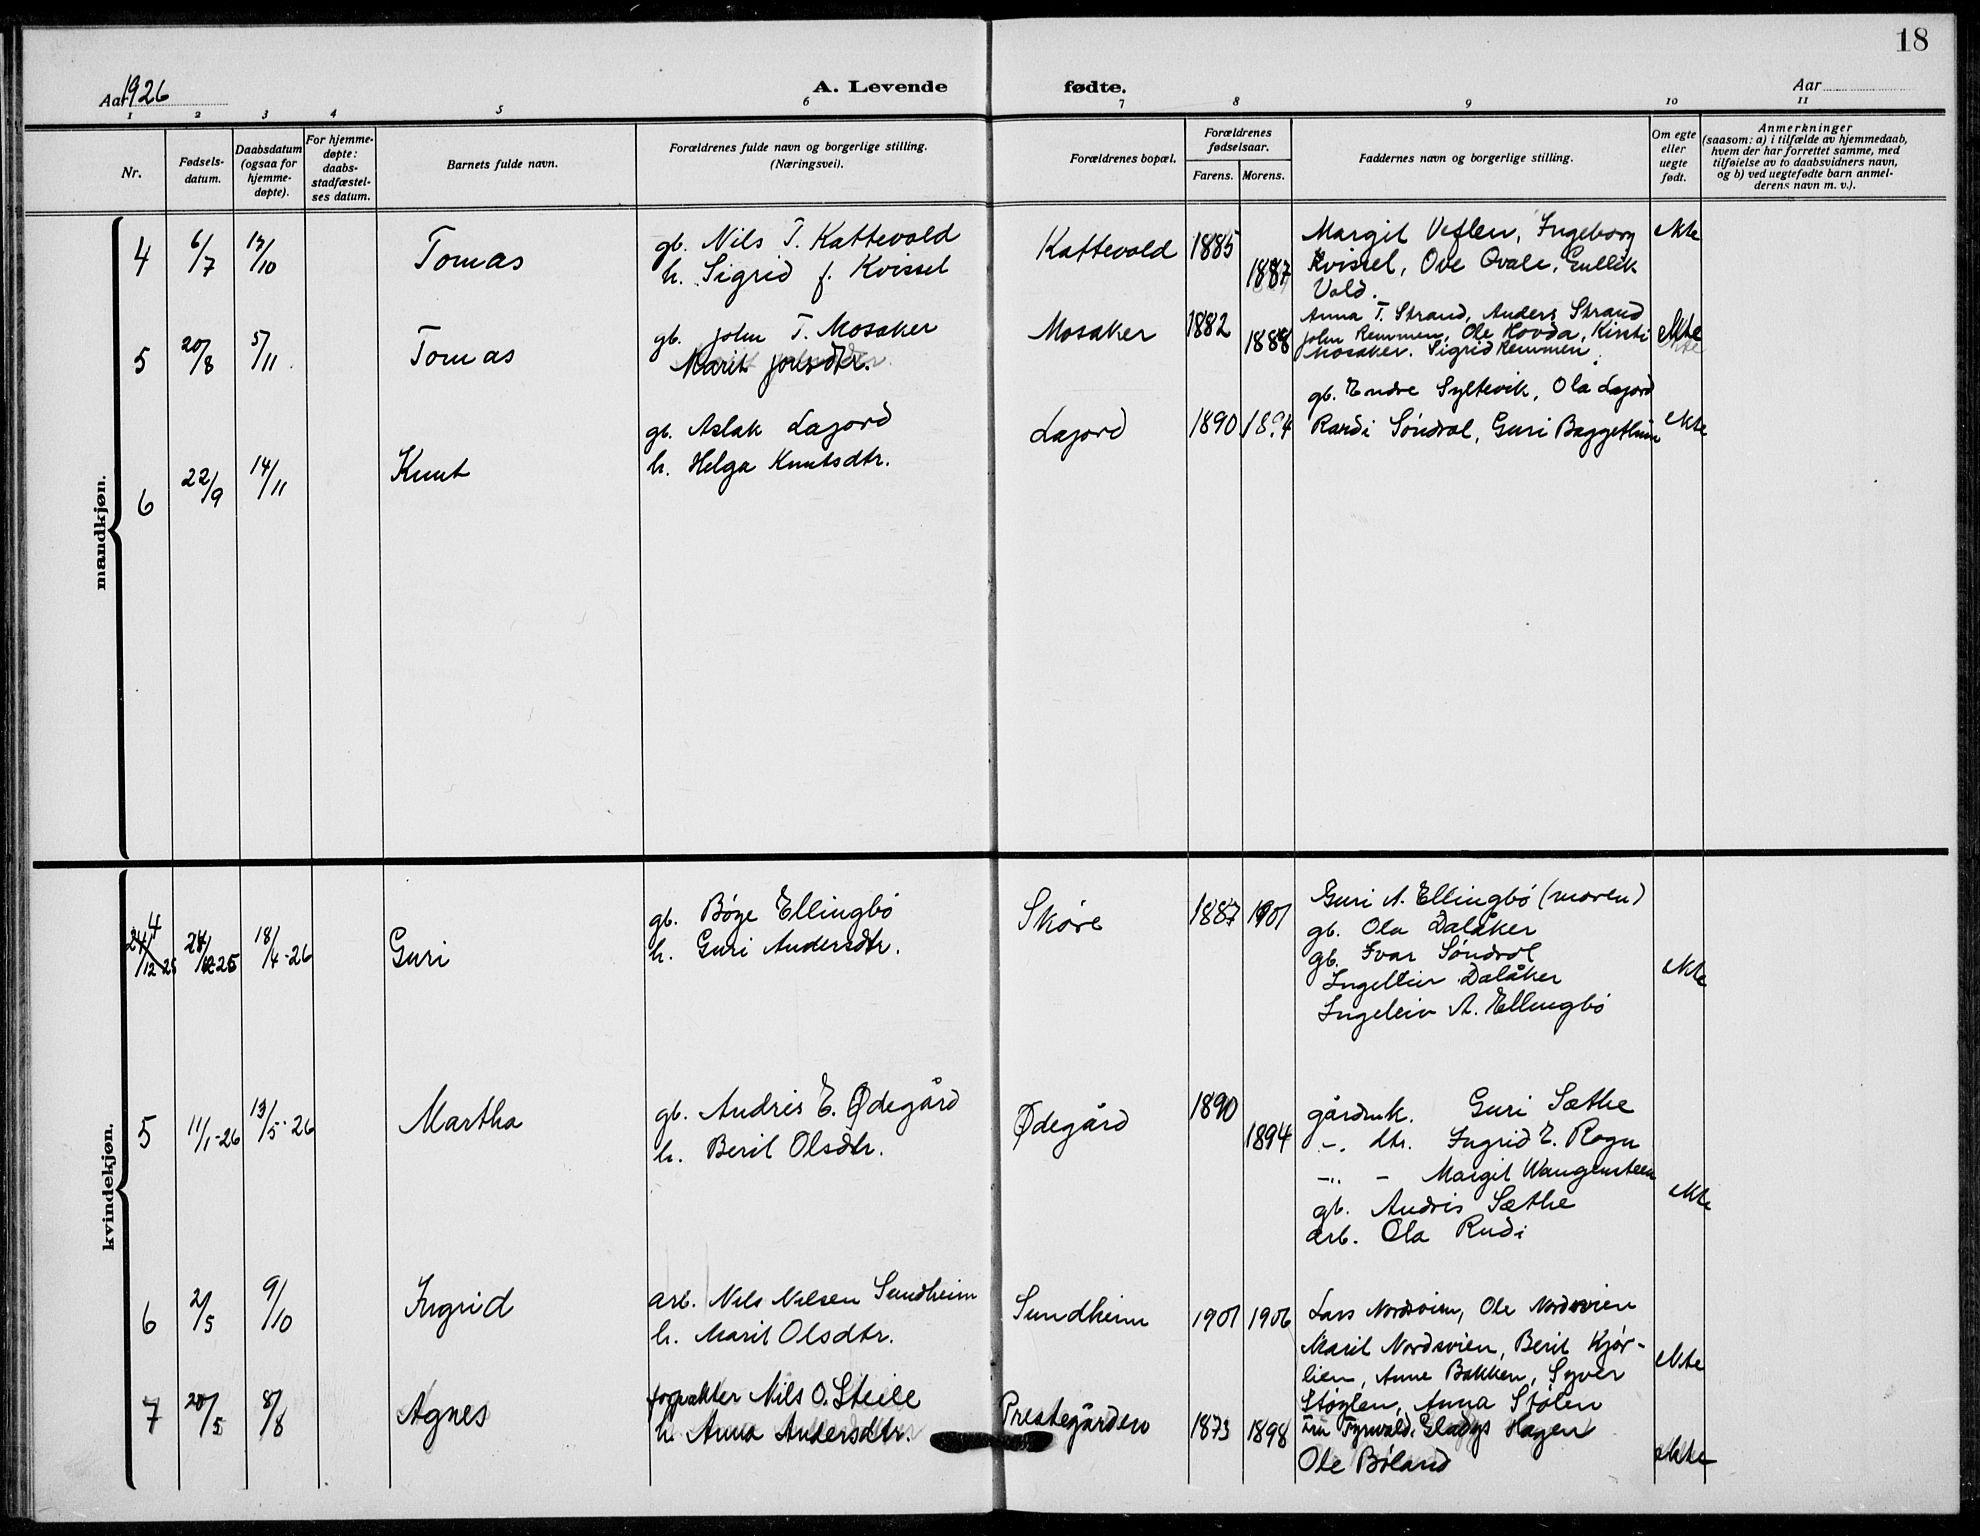 18
Aar 1926
A. Levende fødte.
Aar
1 2 3 4 5 6 7 8 9 10 11
Nr.
Fødsels-
datum.
Daabsdatum
(ogsaa for
hjemme-
døpte).
For hjemme-
døpte:
daabs-
stadfæstel-
ses datum.
Barnets fulde navn.
Forældrenes fulde navn og borgerlige stilling.
(Næringsvei).
Forældrenes bopæl.
Forældrenes
fødselsaar.
Farens. Morens.
Faddernes navn og borgerlige stilling.
Om egte
eller
uegte
født.
Anmerkninger
(saasom: a) i tilfælde av hjemmedaab,
hvem der har forrettet samme, med
tilføielse av to daabsvidners navn,
og b) ved uegtefødte barn anmel-
derens navn m. v.).
mandkjøn.
4 6/7 /10 Tomas
gb. Nils T. Kattevold
h. Sigrid f. Kvissel
Kattevold 1885 1887
Margit Veflen, Ingeborg
Kvissel, Ove Qvale, Gullik
Vold.
ekte
5 20/8 5/11 Tomas
gb. John T. Mosaker
Marit Jonsdtr.
Mosaker 1882 1888
Anna T. Strand, Anders Strand
John Remmen, Ole Hovda, Kirsti
Mosaker. Sigrid Remmen.
ekte
6 22/9 14/11 Knut
gb. Aslak Lajord
h. Helga Knutsdtr.
Lajord 1890
gb. Endre Syltevik, Ola Lajord
Randi Søndrol, Guri
ekte
kvindekjøn.
4 24/12 25 18/4-26 Guri
gb. Bøye Ellingbø
h. Guri Andersdtr.
Skøre 1887 1901
Guri A. Ellingbø (moren)
gb. Ola Dalåker
gb. Ivar Søndrol
Dalåker
Ingeleiv A. Ellingbø
ekte
5 11/1-26 13/5-26 Martha
gb. Andris E. Ødegård
h. Berit Olsdtr.
Ødegård 1890 1894
gårdmk. Guri Sæthe
-,,- dtr. Ingrid E. Rogn
-,,- - Margit Wangensteen
gb. Andris Sæthe
arb. Ola Rudi
ekte
6 2/5 9/10 Ingrid
arb. Nils Nilsen Sundheim
h. Marit Olsdtr.
Sundheim 1901 1906
Lars Nordsvien, Ole Nordsvien
Marit Nordsvien, Berit Kjør-
lien, Anne Bakken, Syver
Støylen, Anna Stølen
ekte
7 20/5 8/8 Agnes
forpakter Nils O. Steile
h. Anna Andersdtr.
Prestegården 1873 1898
Fru Fyrwald, Gladys Hagen
Ole Bøland
ekte